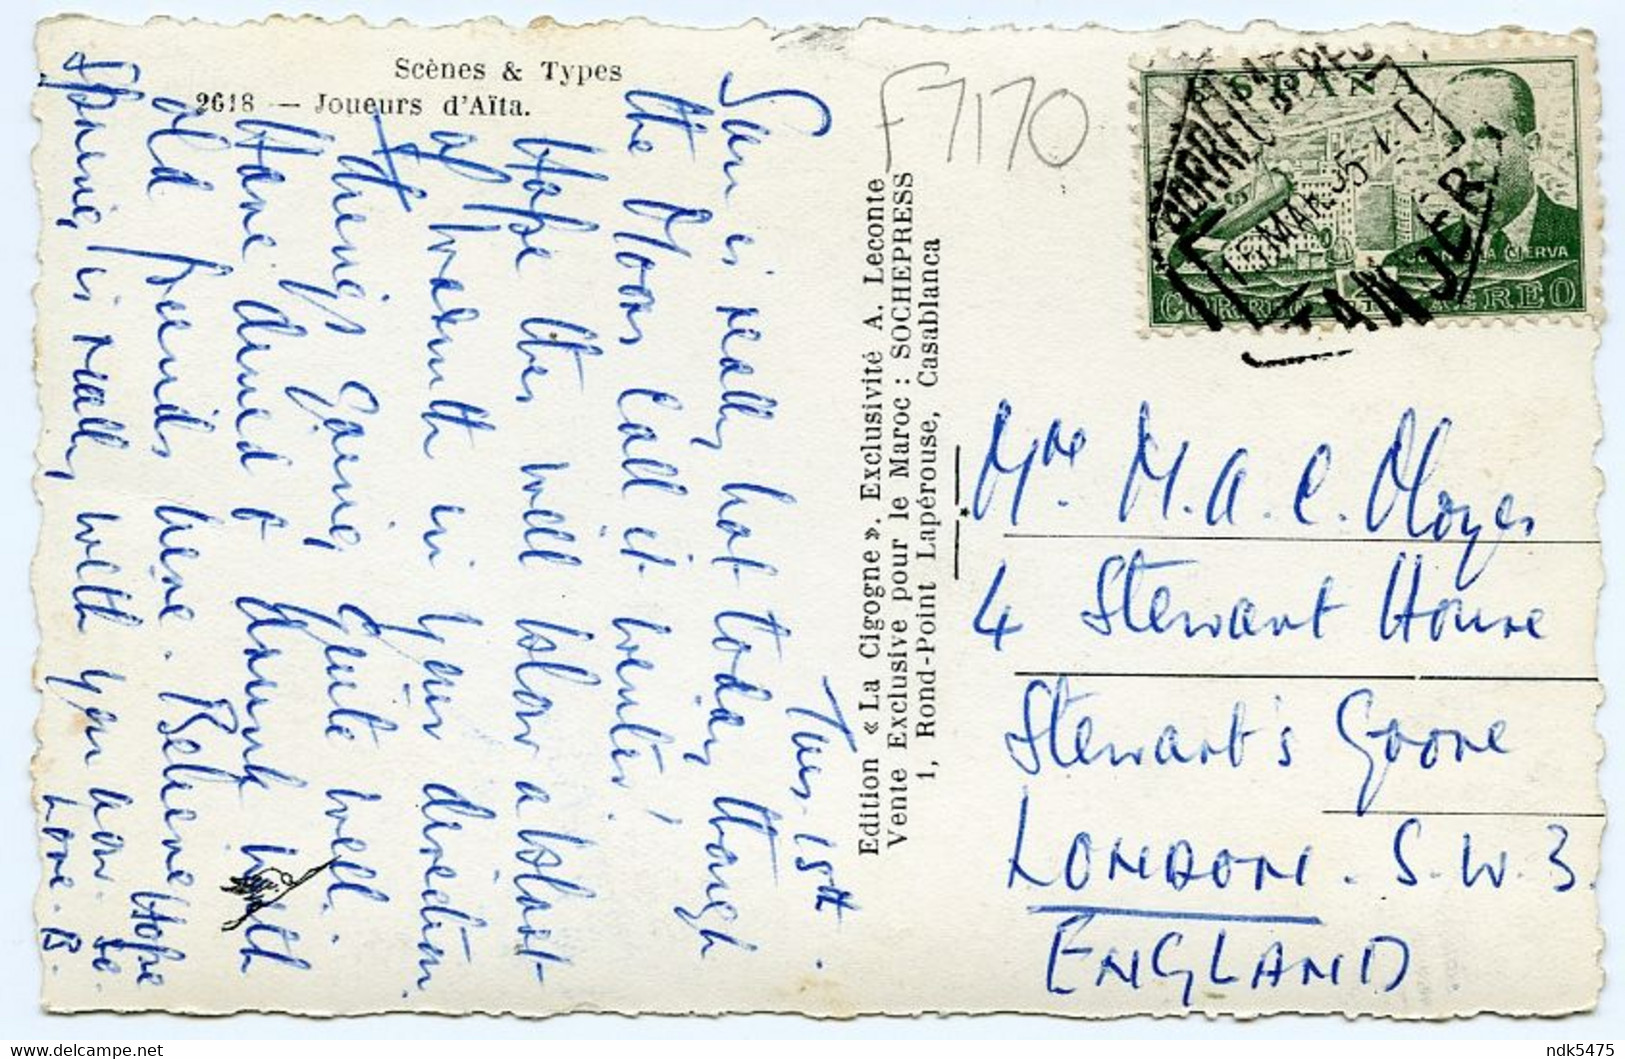 Scènes & Types
2618 — Joueurs d'Aïta.
F7170
ESPAÑA
CORREO AEREO
LA CIERVA
15 MAR 55
TANJER
Edition « La Cigogne ». Exclusivité A. Leconte
Vente Exclusive pour le Maroc : SOCHEPRESS
1, Rond-Point Lapérouse, Casablanca
Tues. 15th.
Sun is really hot today though
the Moors call it winter!
Hope this will blow a blast
of warmth in your direction.
Things going quite well.
Have dined & drunk with
old friends here. Believe
Spring is really with you now.
Hope
Love. B.
Mrs M. A. C. Noyes
4 Stewart House
Stewart's Grove
LONDON. S.W.3.
ENGLAND
ndk5475
www.delcampe.net